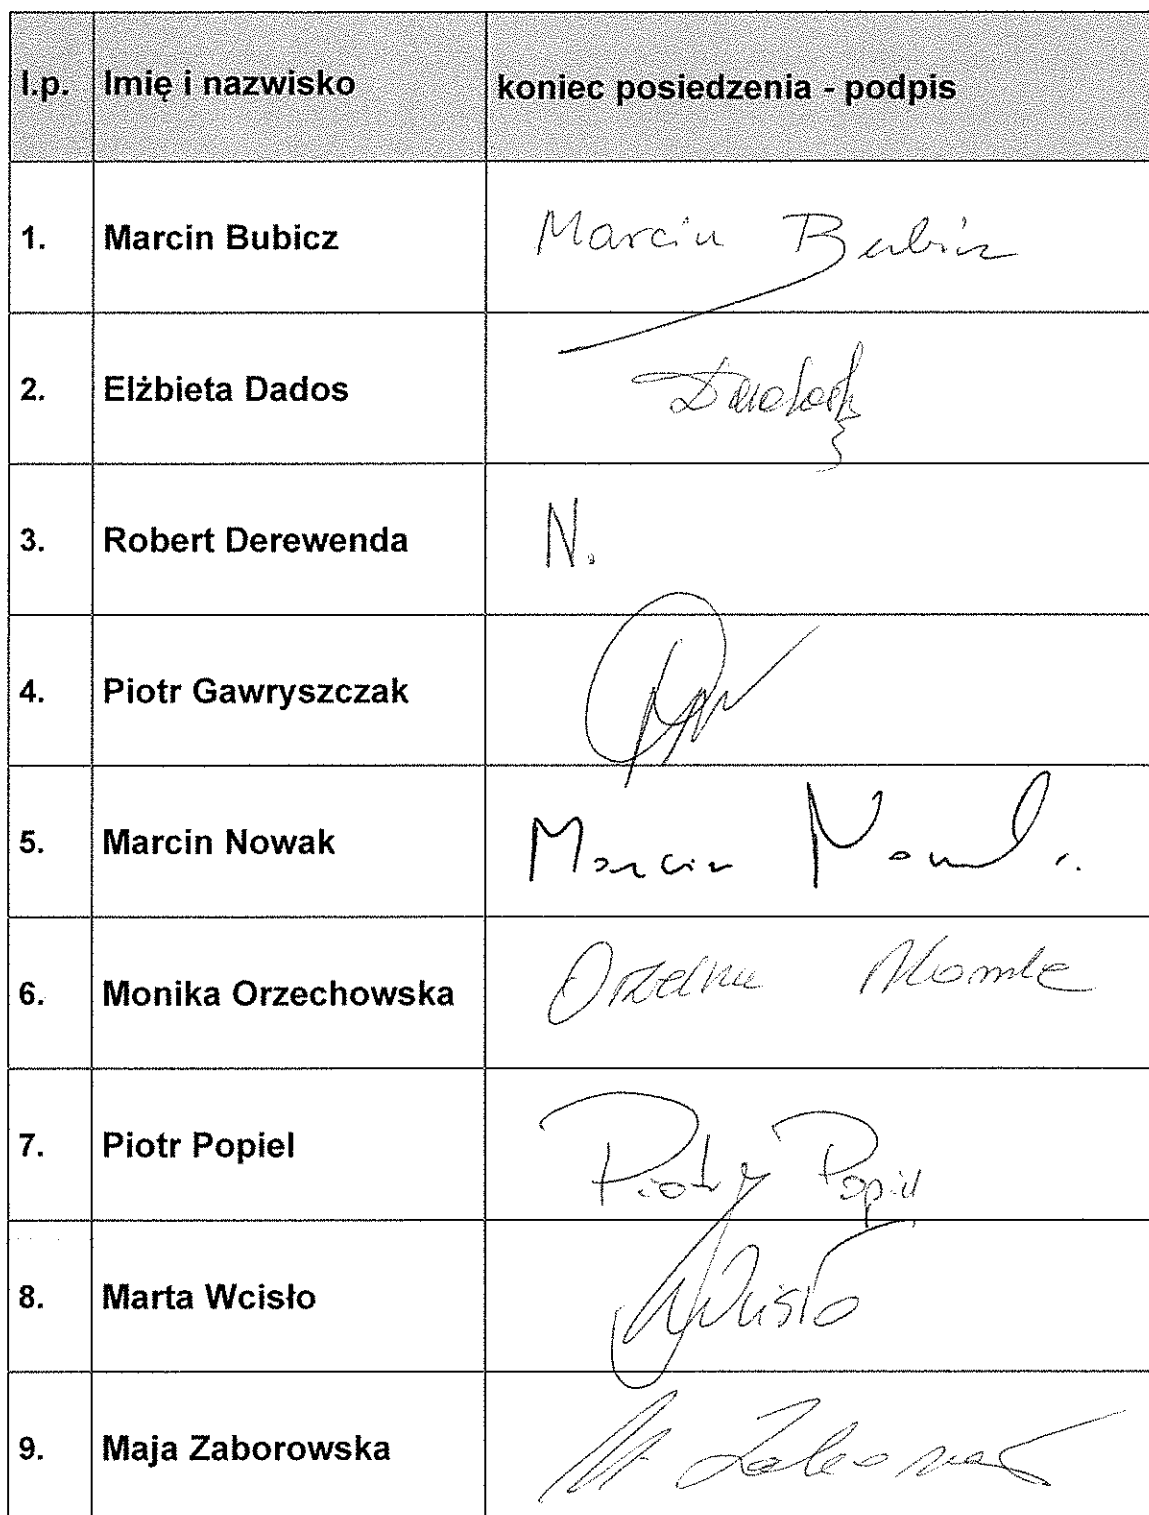 l.p. Imię i nazwisko koniec posiedzenia - podpis
1. Marcin Bubicz Marcin Bubicz
2. Elżbieta Dados
3. Robert Derewenda N.
4. Piotr Gawryszczak
5. Marcin Nowak Marcin Nowak
6. Monika Orzechowska
7. Piotr Popiel Piotr Popiel
8. Marta Wcisło Wcisło
9. Maja Zaborowska